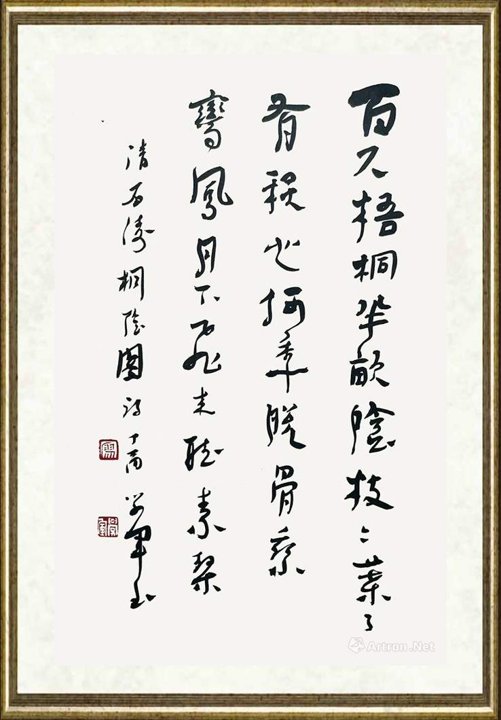 百尺梧桐半畝陰枝々葉々
有秋心何年脱骨乘
鸞鳳月下飛来聽素琴
清石濤桐陰圖詩丁酉学軍书
Artron.Net